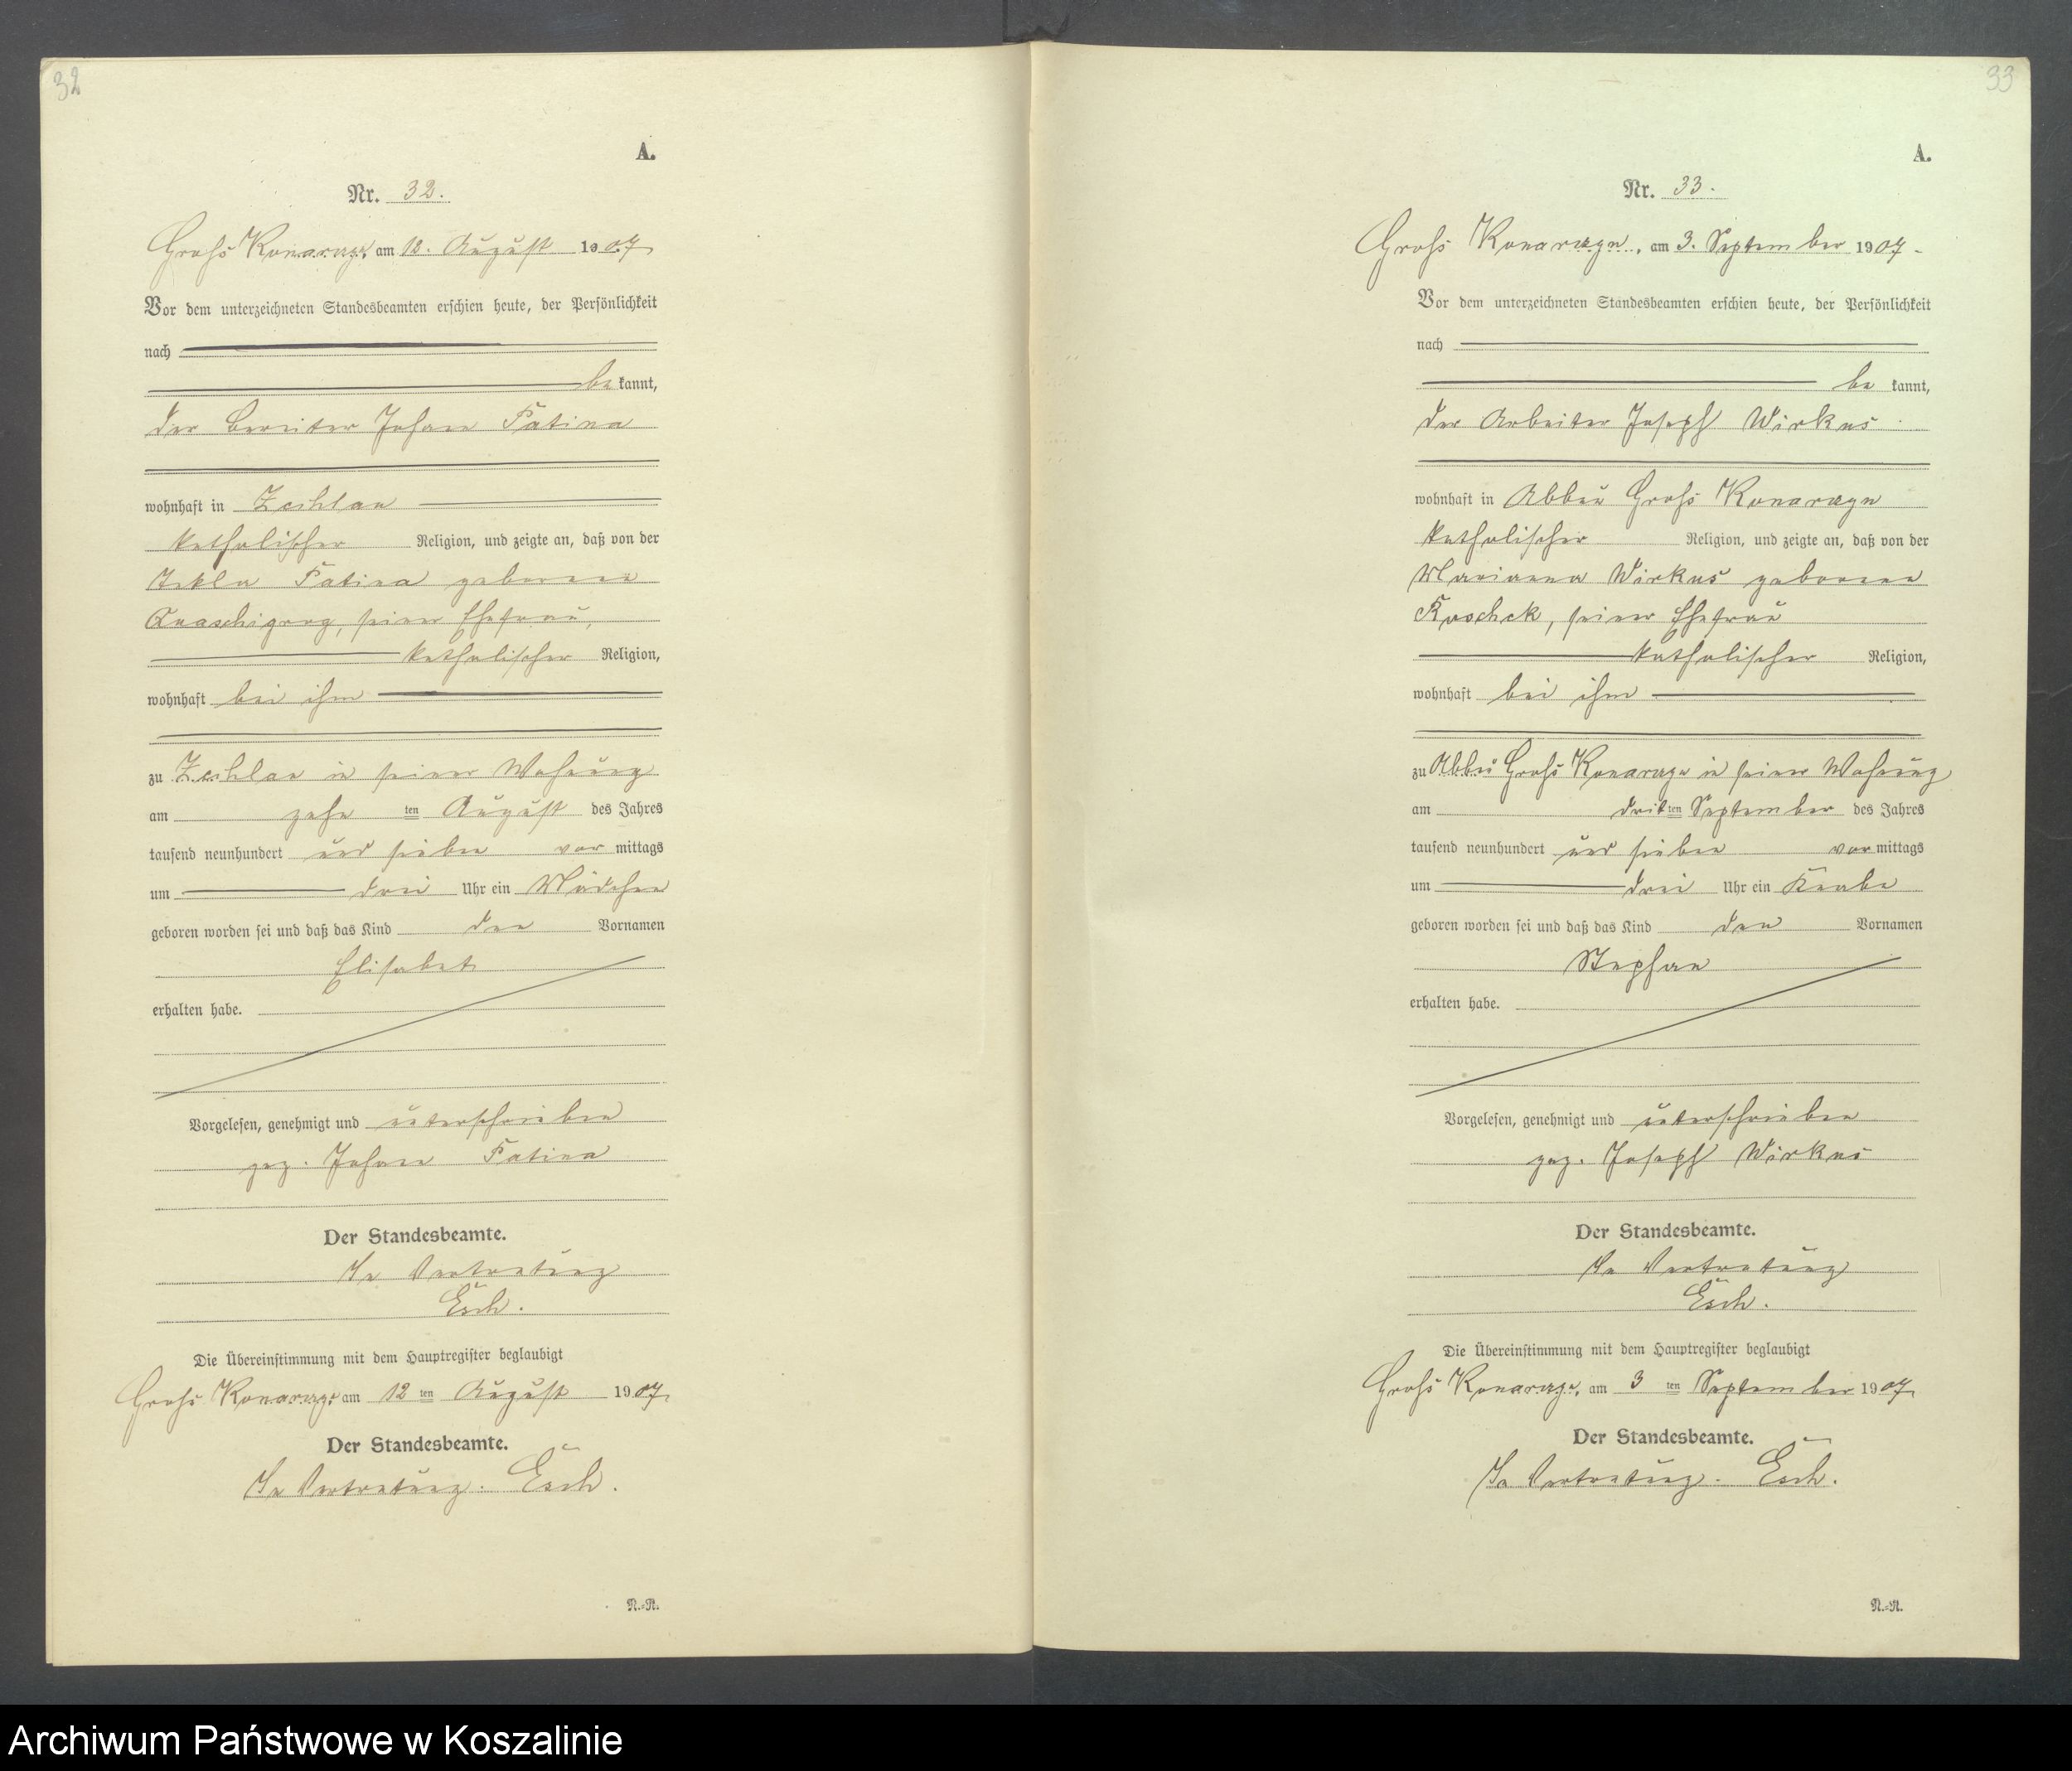 32
A.
Nr. 32.
Groß Konarczyn am 12. August 1907
Vor dem unterzeichneten Standesbeamten erschien heute, der Persönlichkeit
nach
be kannt,
der Johann Fatina
wohnhaft in Zechlau
katholischer Religion, und zeigte an, daß von der
Tekla Fatina geborene
seiner Ehefrau,
katholischer Religion,
wohnhaft bei ihm
zu Zechlau in seiner Wohnung
am zehn ten August des Jahres
tausend neunhundert und sieben vor mittags
um drei Uhr ein Mädchen
geboren worden sei und daß das Kind den Vornamen
Elisabet
erhalten habe.
Vorgelesen, genehmigt und unterschrieben
gez. Johann Fatina
Der Standesbeamte.
In Vertretung
Esch.
Die Übereinstimmung mit dem Hauptregister beglaubigt
Groß Konarczyn am 12 ten August 1907.
Der Standesbeamte.
In Vertretung. Esch.
N.=R.
33
A.
Nr. 33.
Groß Konarczyn, am 3. September 1907.
Vor dem unterzeichneten Standesbeamten erschien heute, der Persönlichkeit
nach
be kannt,
der Arbeiter Joseph Wirkus
wohnhaft in Abbau Groß Konarczyn
katholischer Religion, und zeigte an, daß von der
Marianna Wirkus geborene
seiner Ehefrau
katholischer Religion,
wohnhaft bei ihm
zu Abbau Groß Konarczyn in seiner Wohnung
am drit ten September des Jahres
tausend neunhundert und sieben vor mittags
um drei Uhr ein Knabe
geboren worden sei und daß das Kind den Vornamen
Stephan
erhalten habe.
Vorgelesen, genehmigt und unterschrieben
gez. Joseph Wirkus
Der Standesbeamte.
In Vertretung
Esch.
Die Übereinstimmung mit dem Hauptregister beglaubigt
Groß Konarczyn, am 3 ten September 1907.
Der Standesbeamte.
In Vertretung. Esch.
N.=R.
Archiwum Państwowe w Koszalinie